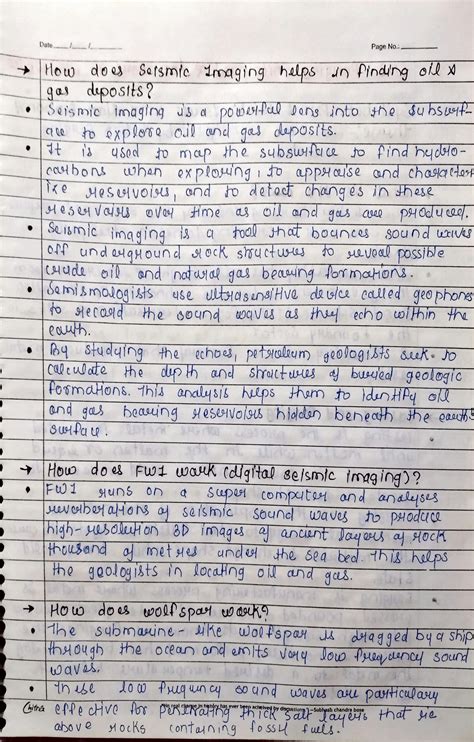 Date ___/___/___ Page No.
→ How does Seismic Imaging helps in finding oil &
gas deposits?
• Seismic imaging is a powerful lens into the subsurf-
ace to explore oil and gas deposits.
• It is used to map the subsurface to find hydro-
carbons when exploring, to appraise and character
ize reservoirs, and to detect changes in these
reservoirs over time as oil and gas are produced.
• Seismic imaging is a tool that bounces sound waves
off underground rock structures to reveal possible
crude oil and natural gas bearing formations.
• Semismologists use ultrasensitive device called geophones
to record the sound waves as they echo within the
earth.
• By studying the echoes, petroleum geologists seek to
calculate the depth and structures of buried geologic
formations. This analysis helps them to identify oil
and gas bearing reservoirs hidden beneath the earth's
surface.
→ How does FWI work (digital seismic imaging)?
• FWI runs on a super computer and analyses
reverberations of seismic sound waves to produce
high-resolution 3D images of ancient layers of rock
thousand of metres under the sea bed. This helps
the geologists in locating oil and gas.
→ How does wolfspar work?
• The submarine-like Wolfspar is dragged by a ship
through the ocean and emits very low frequency sound
waves.
• These low frequency sound waves are particulary
effective for penetrating thick salt layers that re
above rocks containing fossil fuels.
No real change in history has ever been achieved by discussions - Subhash chandra bose